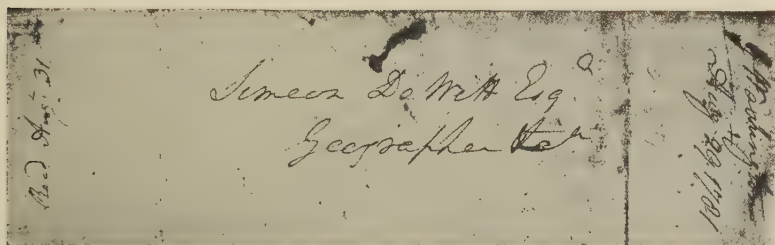 Recd Augt 31
Simeon De Witt Esqr
Geographer &ca
Washington
Augt 29 1781